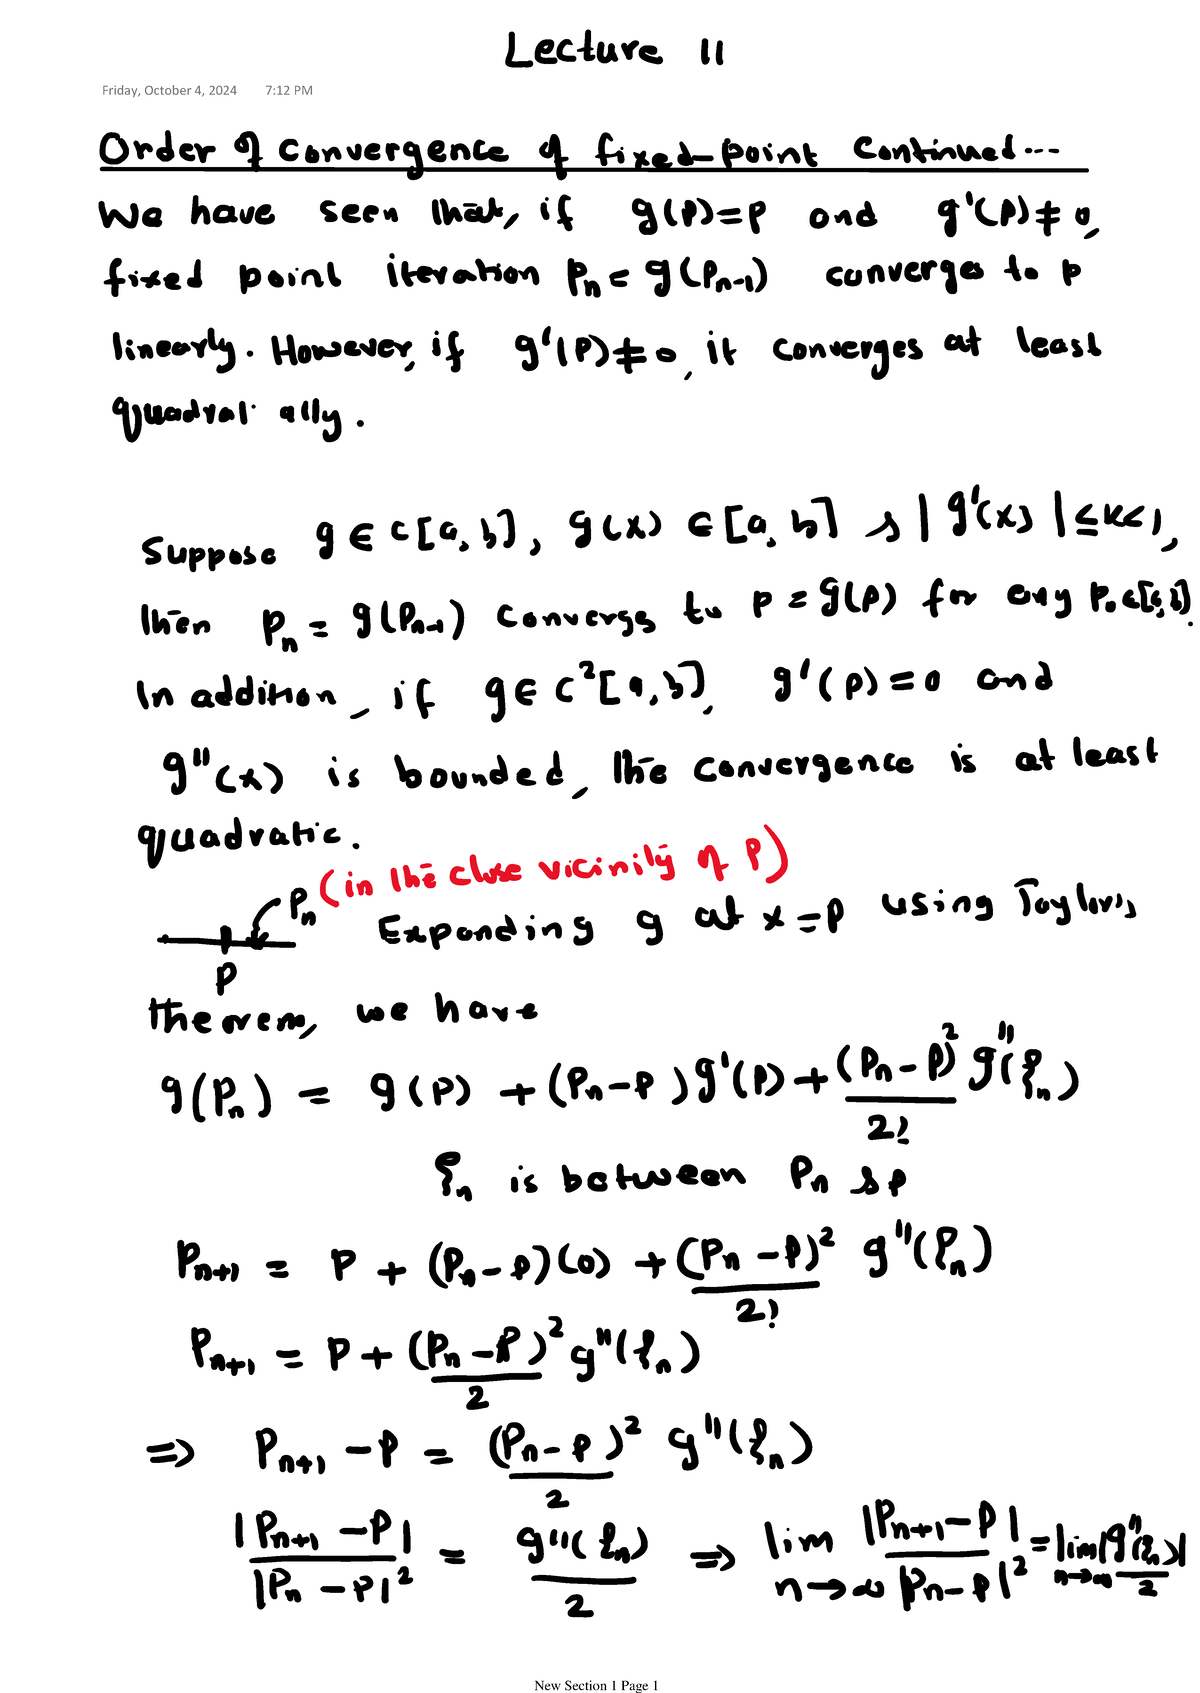 Lecture 11
Friday, October 4, 2024 7:12 PM
Order of convergence of fixed-point Continued...
We have seen that, if g(p)=p and g'(p)≠0,
fixed point iteration Pn = g(Pn-1) converges to p
linearly. However, if g'(p)≠0, it converges at least
quadrat ally.
Suppose g ∈ C[a,b], g(x) ∈ [a,b] & |g'(x)| ≤ K<1,
then Pn = g(Pn-1) converges to p = g(p) for any P0∈[a,b].
In addition, if g∈ C²[a,b], g'(p)=0 and
g''(x) is bounded, the convergence is at least
quadratic.
(in the close vicinity of P)
Pn
Expanding g at x=p using Taylor's
P
theorem, we have
g(Pn) = g(P) + (Pn-P)g'(P) + (Pn-P)²/2! g''(ξn)
ξn is between Pn & P
Pn+1 = P + (Pn-P)(0) + (Pn-P)²/2! g''(ξn)
Pn+1 = P + (Pn-P)²/2 g''(ξn)
=> Pn+1 - P = (Pn-P)²/2 g''(ξn)
|Pn+1 - P|/|Pn - P|² = g''(ξn)/2 => lim n→∞ |Pn+1-P|/|Pn-P|² = lim n→∞ |g''(ξn)|/2
New Section 1 Page 1